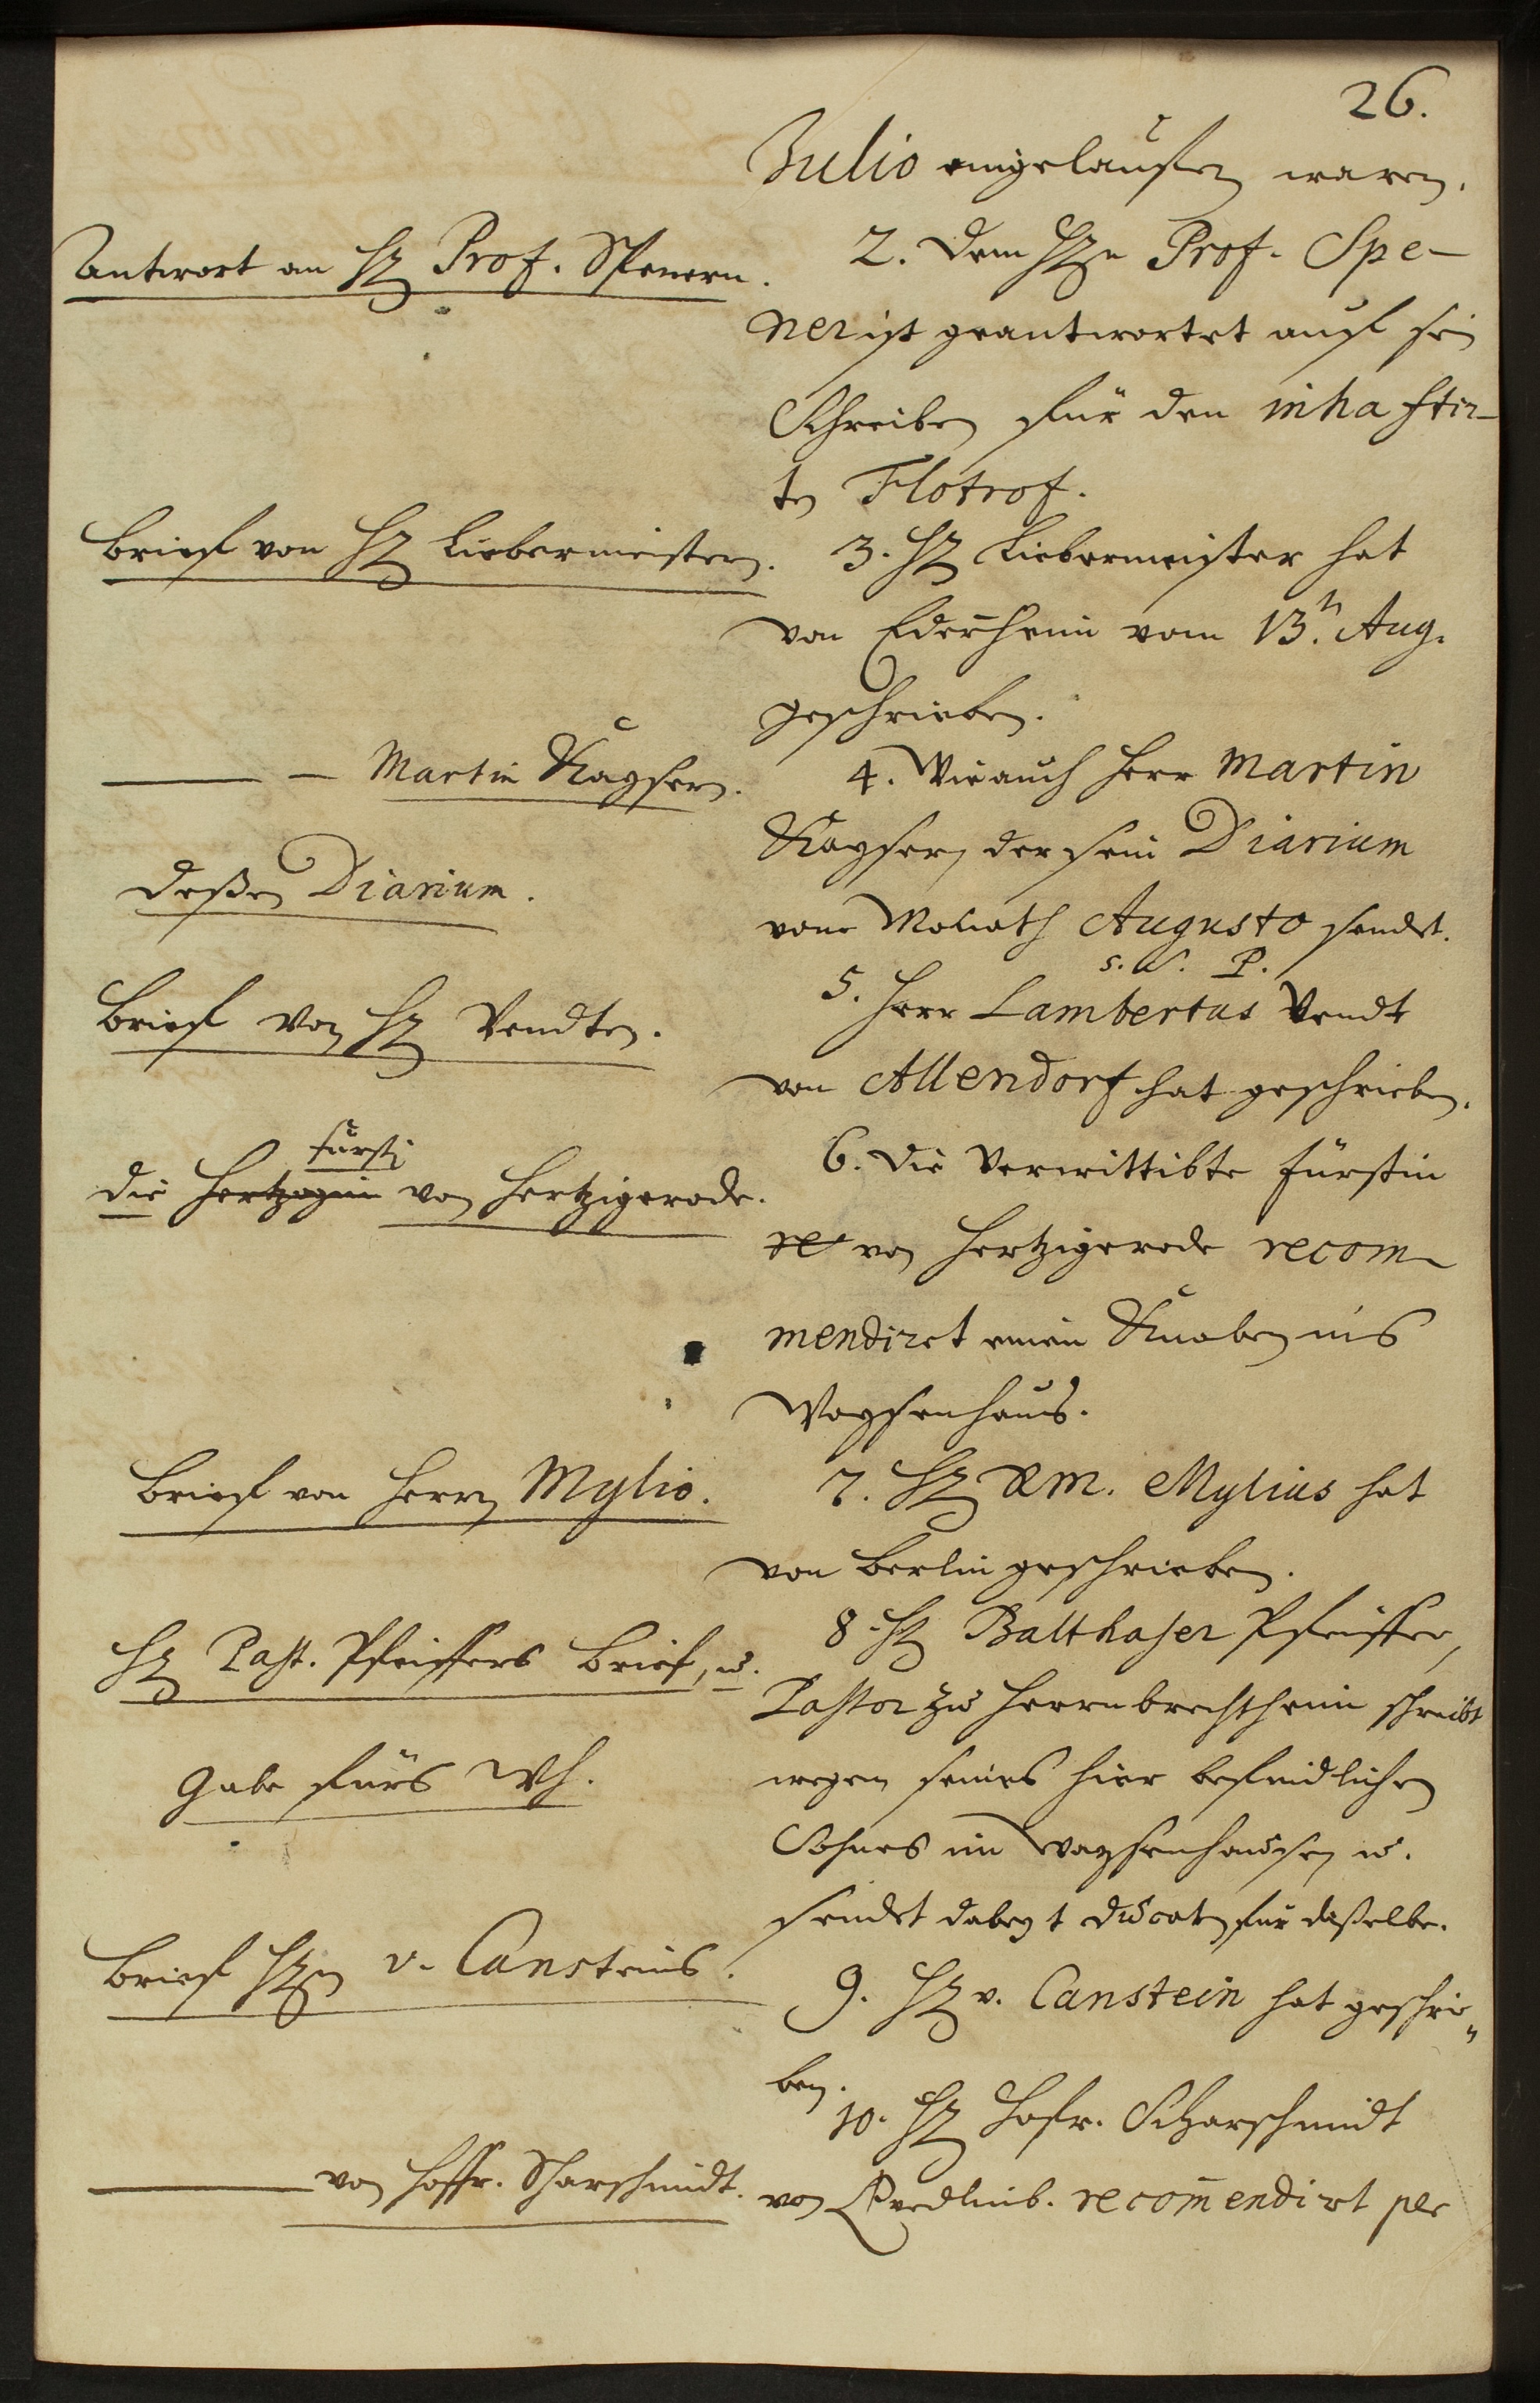 26.
Julio eingelauffen waren.
Antwort an H. Prof. Spenern.
2. Dem Hn. Prof. Spe-
ner ist geantwortet auff sein
Schreiben für den inhaftir-
ten Flotrof.
Brieff von H. Liebermeistern.
3. H. Liebermeister hat
von Ederheim vom 13.n Aug.
geschrieben.
— — Martin Kaysern.
4. Wie auch Herr Martin
Kayser, der sein Diarium
deßen Diarium.
vom Monath Augusto sendet.
s. W. P.
Brieff von H. Vendten.
5. Herr Lambertus Vendt
von Allendorf hat geschrieben.
fürstin
die Hertzogin von Hertzigerode.
6. Die Verwittibte Fürstin
re von Hertzigerode recom-
mendiret einen Knaben ins
Waysenhaus.
Brieff von Herrn Mylio.
7. H. Mylius hat
von Berlin geschrieben.
H. Past. Pfeiffers Brief, u.
8. H. Balthaser Pfeiffer,
Pastor zu Herrnbrechtheim schreibt
gabe fürs Wh.
wegen seines hier befindlichen
Sohnes im Waysenhausen u.
sendet dabey 1 ducaten für daßelbe.
Brieff Hn v. Cansteins.
9. H. v. Canstein hat geschrie„
ben.
10. H. Hofr. Scharschmidt
— von Hoffr. Scharschmidt.
von Quedlinb. recom̄endirt per